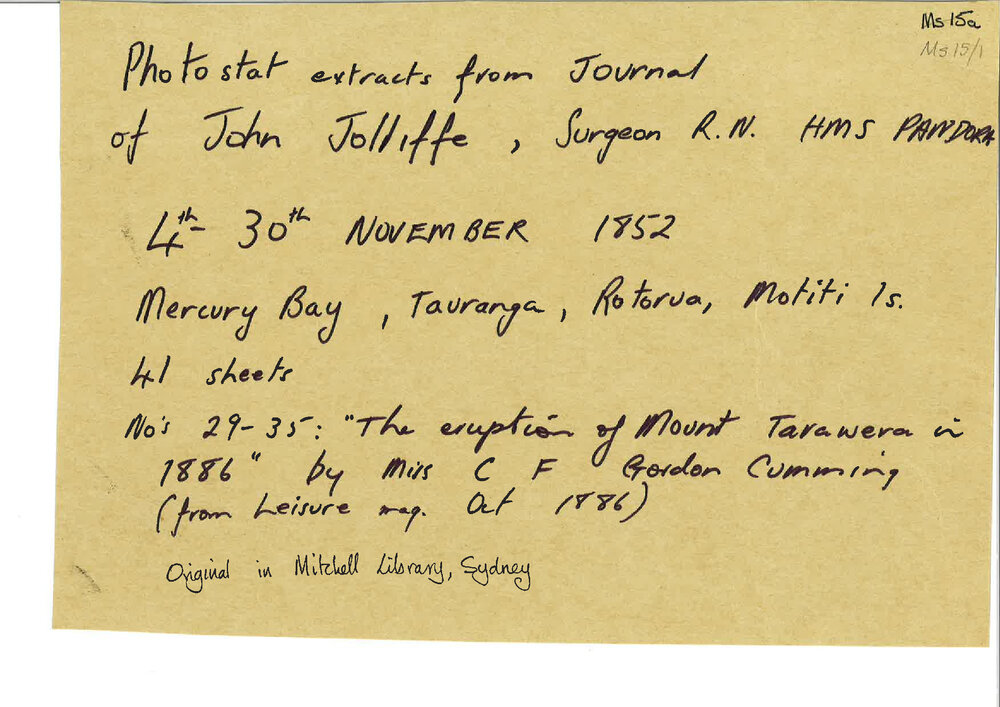 Ms 15a
Ms 15/1
Photostat extracts from Journal
of John Jolliffe, Surgeon R.N. HMS PANDORA
4th - 30th NOVEMBER 1852
Mercury Bay, Tauranga, Rotorua, Motiti Is.
41 sheets
No's 29-35: "The eruption of Mount Tarawera in
1886" by Miss C F Gordon Cumming
(from Leisure mag. Oct 1886)
Original in Mitchell Library, Sydney